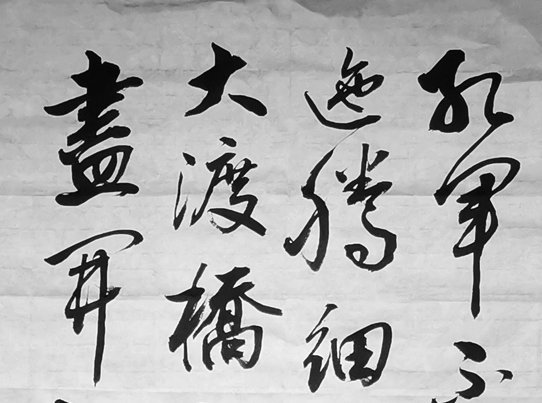 紅軍不
迤騰細
大渡橋
盡開